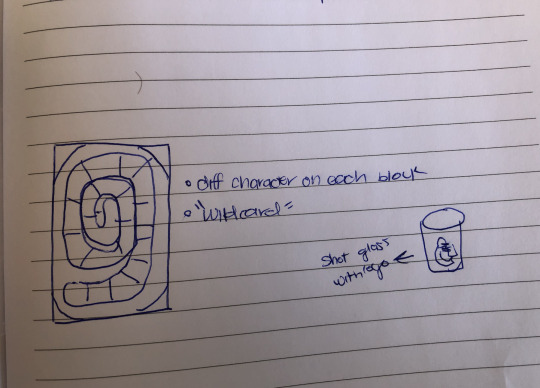 • diff character on each block
• "Wildcard"
Shot glass
with logo